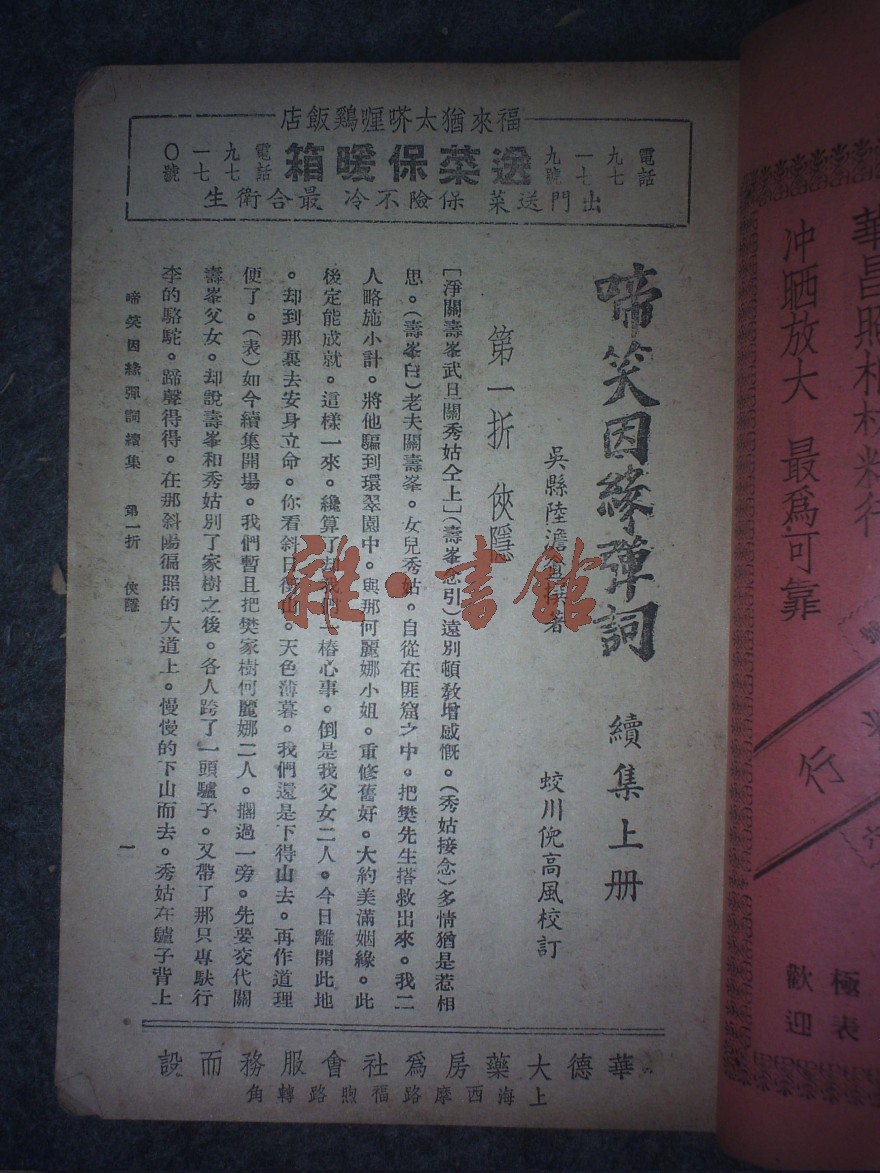 福來猶太哜喱鷄飯店
電話 九七一七九號
送菜保暖箱
電話 九七一七〇號
出門送菜 保險不冷 最合衛生
啼笑因緣彈詞 續集上册
吳縣陸澹著 蛟川倪高風校訂
第一折 俠隱
[淨關壽峯武旦關秀姑仝上](壽峯念引)遠別頓教增感慨。(秀姑接念)多情猶是惹相
思。(壽峯白)老夫關壽峯。女兒秀姑。自從在匪窟之中。把樊先生搭救出來。我二
人略施小計。將他騙到環翠園中。與那何麗娜小姐。重修舊好。大約美滿姻緣。此
後定能成就。這樣一來。纔算了却我們一椿心事。倒是我父女二人。今日離開此地
。却到那裏去安身立命。你看斜日銜山。天色薄暮。我們還是下得山去。再作道理
便了。(表)如今續集開場。我們暫且把樊家樹何麗娜二人。擱過一旁。先要交代關
壽峯父女。却說壽峯和秀姑別了家樹之後。各人跨了一頭驢子。又帶了那只專馱行
李的駱駝。蹄聲得得。在那斜陽徧照的大道上。慢慢的下山而去。秀姑在驢子背上
啼笑因緣彈詞續集 第一折 俠隱 一
華德大藥房爲社會服務而設
上海西摩路福煦路轉角
雜·書館
華昌照相材料行
冲晒放大 最爲可靠
行
極表
歡迎